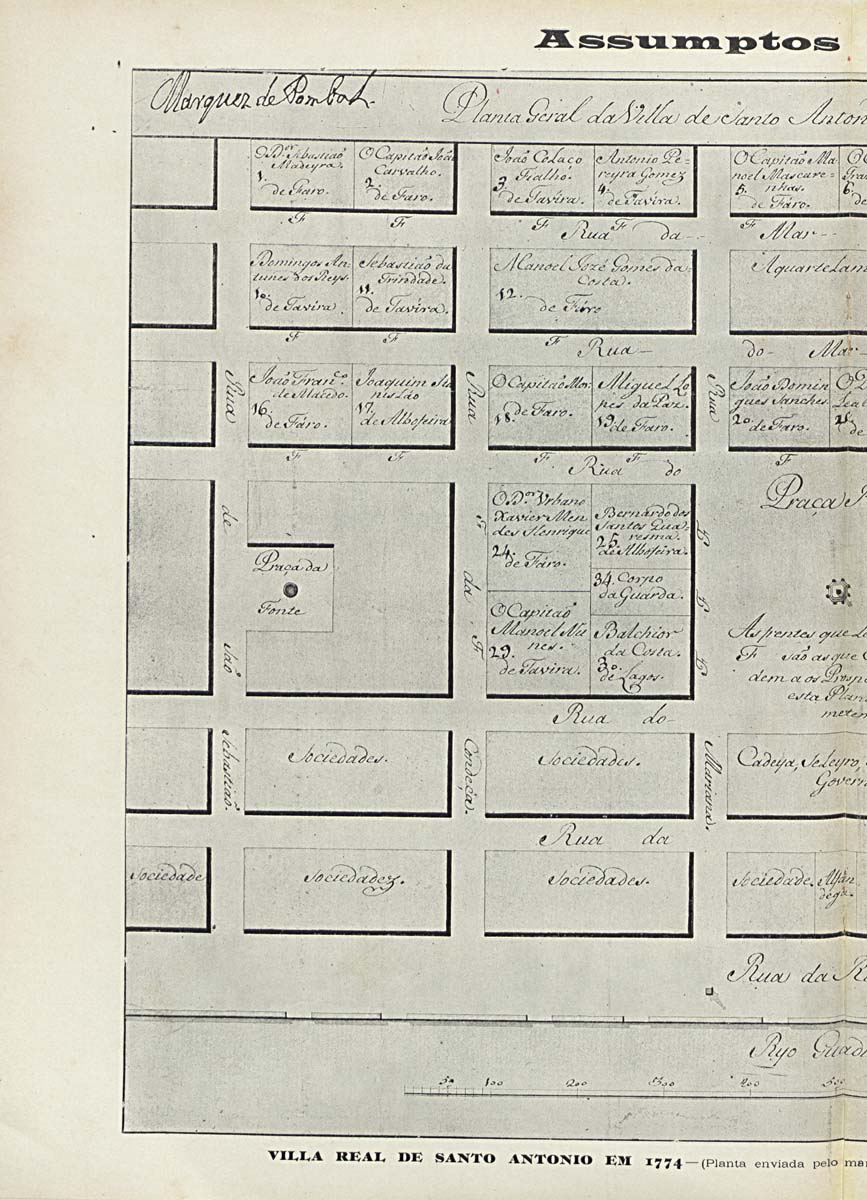 Assumptos
Marquez de Pombal.
Planta Geral da Villa de Santo Anton
O Dor Sebastiaõ
Madeyra.
1.
de Faro.
O Capitaõ Joaõ
Carvalho.
2.
de Faro.
Joaõ Colaço
Fialho.
3.
de Tavira.
Antonio Pe-
reyra Gomez
4.
de Tavira.
O Capitaõ Ma
noel Mascare-
nhas.
5.
de Fáro.
6.
de
F F F F F
Rua da Mar
Domingos An-
tunes dos Reys.
10.
de Tavira.
Sebastiaõ da
Trindade.
11.
de Tavira.
Manoel Jozé Gomes da
Costa.
12.
de Fáro
Aquartelam
F F F
Rua do Mar
Joaõ Franco.
de Macedo.
16.
de Fáro.
Joaquim
17.
de Albofeira
O Capitaõ Mor
18.
de Faro.
Miguel Lo
pes da Paz.
19.
de Faro.
Joaõ Domin
gues Sanches.
20.
de Faro.
21.
de
F F F F F
Rua do
Rua de Saõ Sebastiaõ.
Rua da Condeça.
Rua Mariana.
Praça da
Fonte
O Dor Urbano
Xavier Men
des Henrique
24.
de Fáro.
Bernardo dos
Santos Qua-
resma.
25.
de Albofeira.
34. Corpo
da Guarda.
O Capitaõ
Manoel Nu
nes.
29.
de Tavira.
Balchior
da Costa.
30.
de Lagos.
F F F F F
Praça
As frentes que
F saõ as que
dem a os Prosp
esta Plan
meten
Rua do
Sociedades.
Sociedades.
Cadeya, Seleyro,
Govern
Rua da
Sociedade
Sociedades.
Sociedades.
Sociedade.
Alfan
dega.
Rua da
Ryo Guadi
50 100 200 300 400 500
VILLA REAL DE SANTO ANTONIO EM 1774—(Planta enviada pelo mar